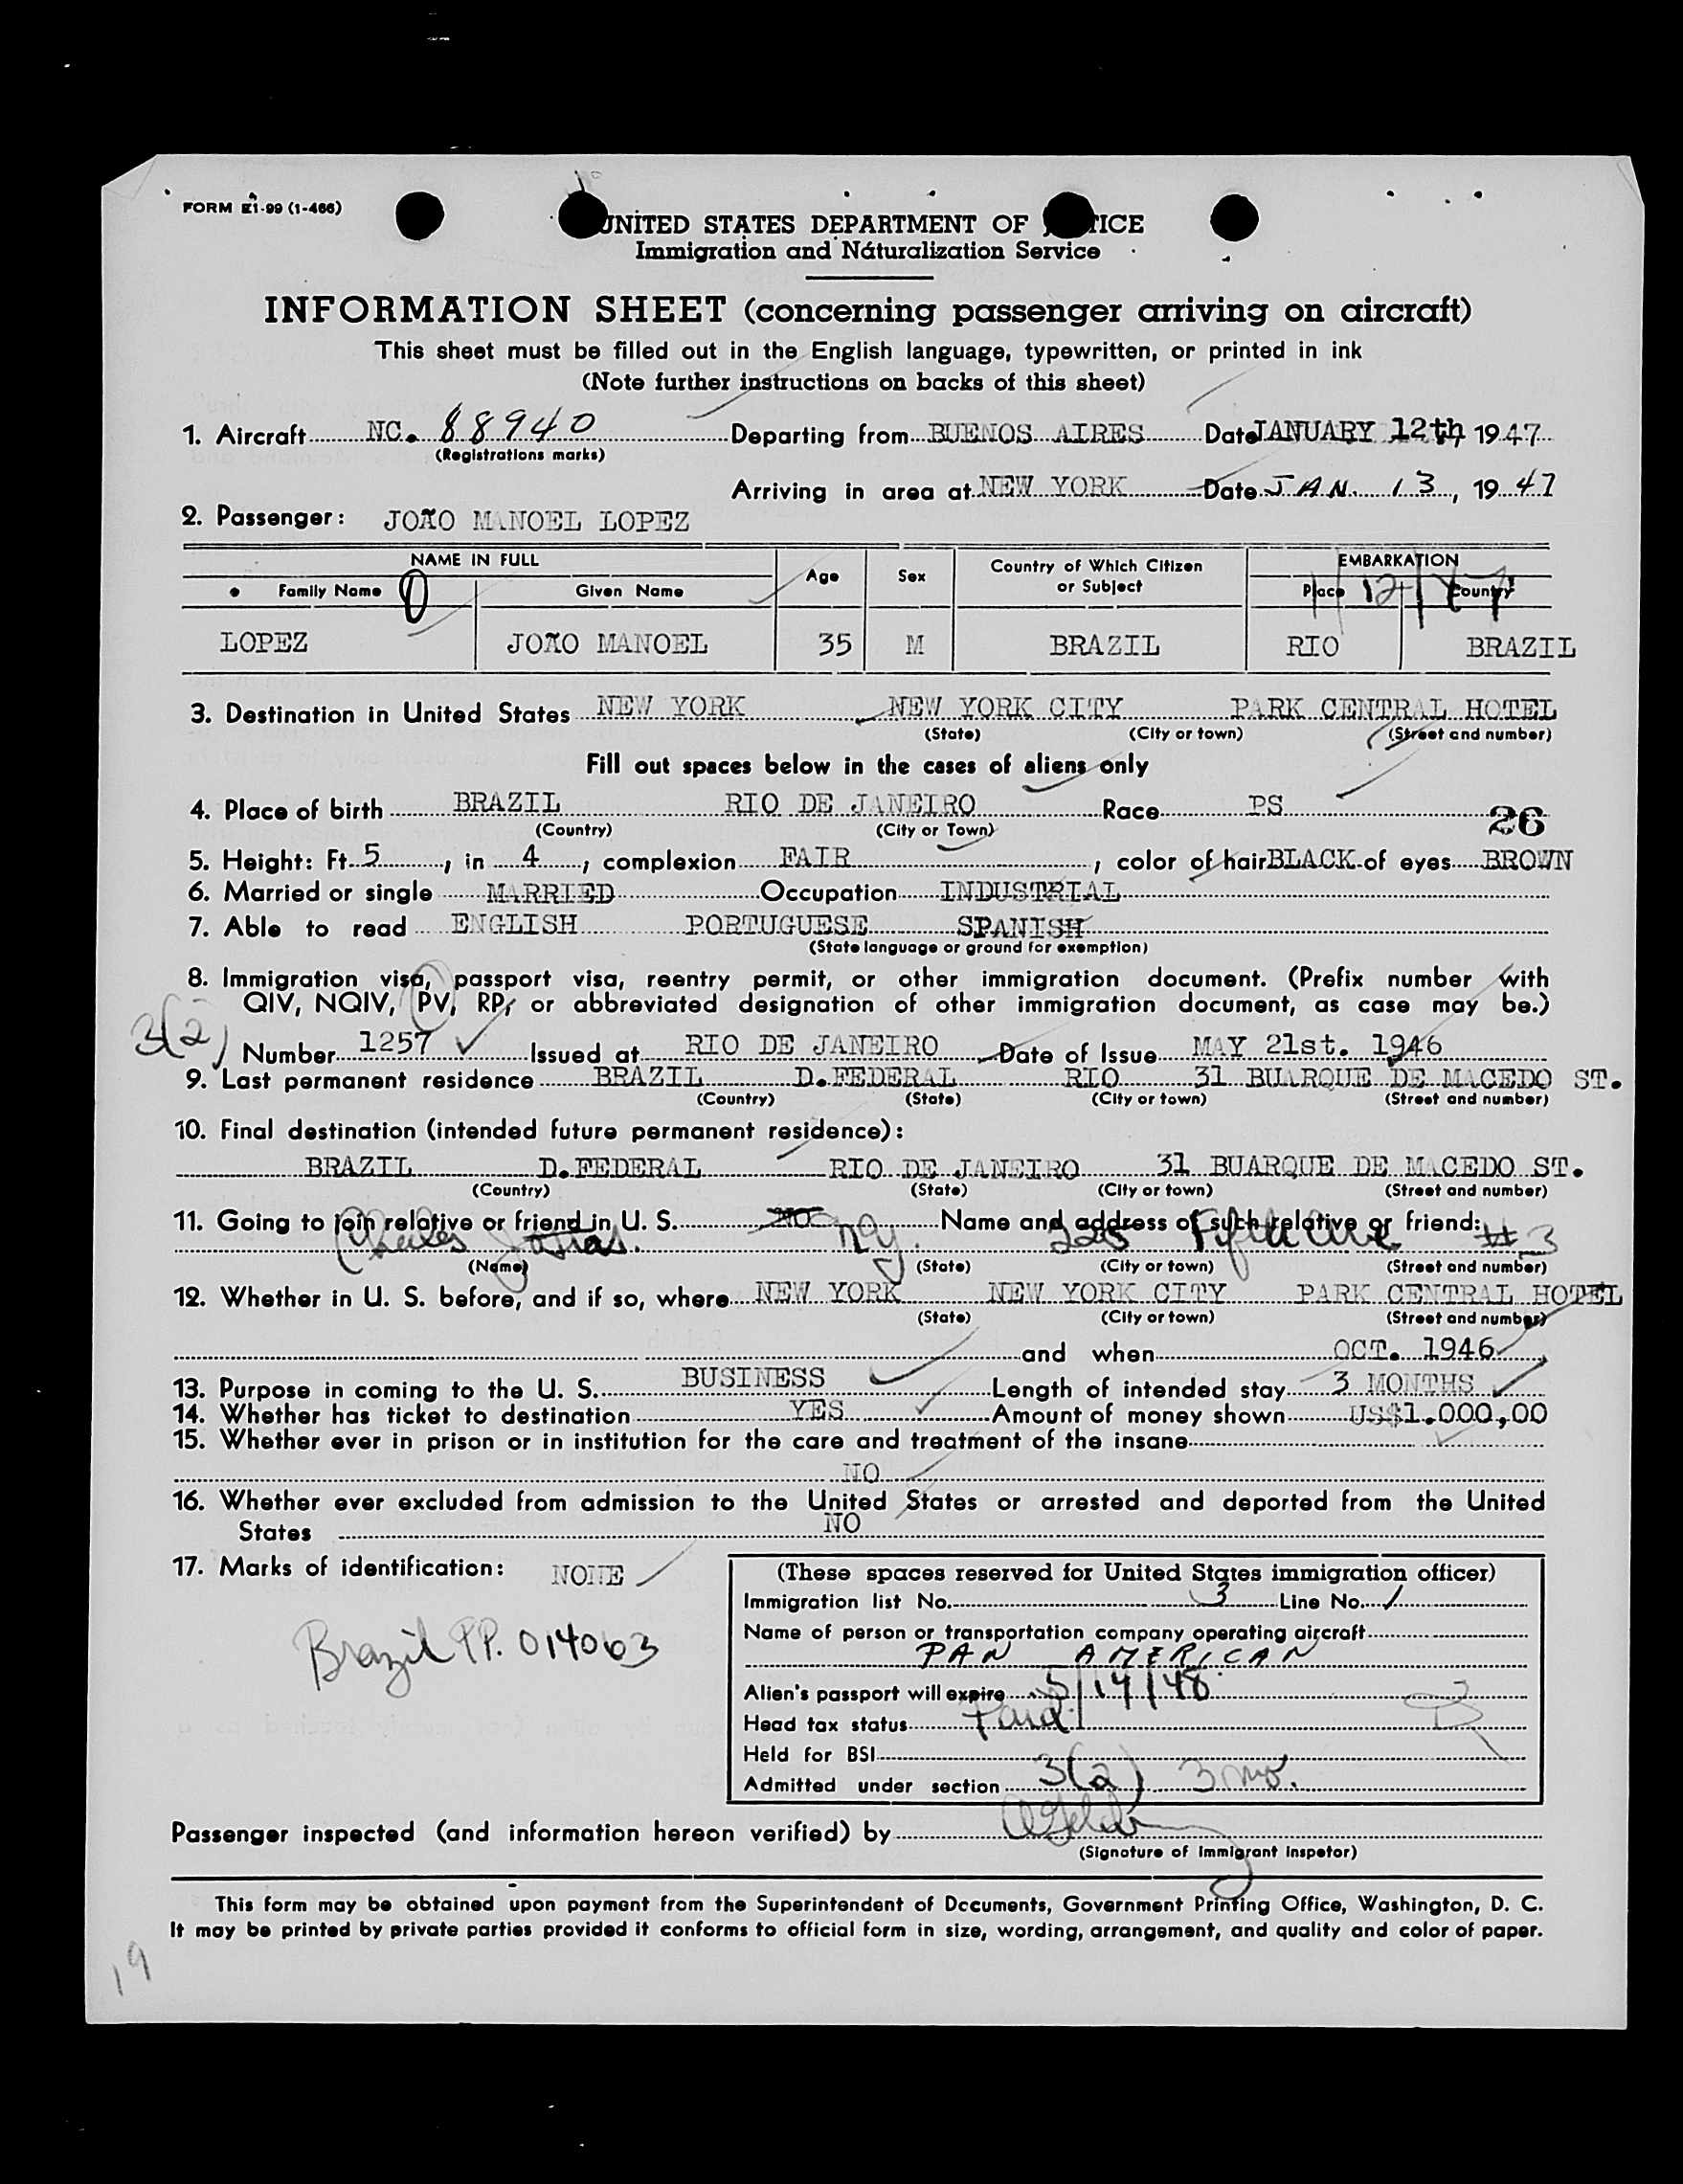 FORM E1-99 (1-466)
UNITED STATES DEPARTMENT OF TICE
Immigration and Naturalization Service
INFORMATION SHEET (concerning passenger arriving on aircraft)
This sheet must be filled out in the English language, typewritten, or printed in ink
(Note further instructions on backs of this sheet)
1. Aircraft NC. 88940 Departing from BUENOS AIRES Date JANUARY 12th, 1947
(Registrations marks)
Arriving in area at NEW YORK Date JAN. 13, 1947
2. Passenger: JOÃO MANOEL LOPEZ
NAME IN FULL Age Sex Country of Which Citizen or Subject EMBARKATION
Family Name Given Name Place Country
LOPEZ JOÃO MANOEL 35 M BRAZIL RIO BRAZIL
3. Destination in United States NEW YORK NEW YORK CITY PARK CENTRAL HOTEL
(State) (City or town) (Street and number)
Fill out spaces below in the cases of aliens only
4. Place of birth BRAZIL RIO DE JANEIRO Race PS 26
(Country) (City or Town)
5. Height: Ft. 5, in 4, complexion FAIR, color of hair BLACK of eyes BROWN
6. Married or single MARRIED Occupation INDUSTRIAL
7. Able to read ENGLISH PORTUGUESE SPANISH
(State language or ground for exemption)
8. Immigration visa, passport visa, reentry permit, or other immigration document. (Prefix number with
QIV, NQIV, PV, RP, or abbreviated designation of other immigration document, as case may be.)
3(2) Number 1257 Issued at RIO DE JANEIRO Date of Issue MAY 21st. 1946
9. Last permanent residence BRAZIL D.FEDERAL RIO 31 BUARQUE DE MACEDO ST.
(Country) (State) (City or town) (Street and number)
10. Final destination (intended future permanent residence):
BRAZIL D.FEDERAL RIO DE JANEIRO 31 BUARQUE DE MACEDO ST.
(Country) (State) (City or town) (Street and number)
11. Going to join relative or friend in U. S. NO Name and address of such relative or friend:
Charles NY. 225 Fifth Ave #3
(Name) (State) (City or town) (Street and number)
12. Whether in U. S. before, and if so, where NEW YORK NEW YORK CITY PARK CENTRAL HOTEL
(State) (City or town) (Street and number)
and when OCT. 1946
13. Purpose in coming to the U. S. BUSINESS Length of intended stay 3 MONTHS
14. Whether has ticket to destination YES Amount of money shown US$1.000,00
15. Whether ever in prison or in institution for the care and treatment of the insane
NO
16. Whether ever excluded from admission to the United States or arrested and deported from the United
States NO
17. Marks of identification: NONE
Brazil PP. 014063
(These spaces reserved for United States immigration officer)
Immigration list No. 3 Line No. 1
Name of person or transportation company operating aircraft
PAN AMERICAN
Alien's passport will expire 5/14/48
Head tax status Paid
Held for BSI
Admitted under section 3(2) 3 mo.
Passenger inspected (and information hereon verified) by
(Signature of Immigrant Inspetor)
This form may be obtained upon payment from the Superintendent of Documents, Government Printing Office, Washington, D. C.
It may be printed by private parties provided it conforms to official form in size, wording, arrangement, and quality and color of paper.
19